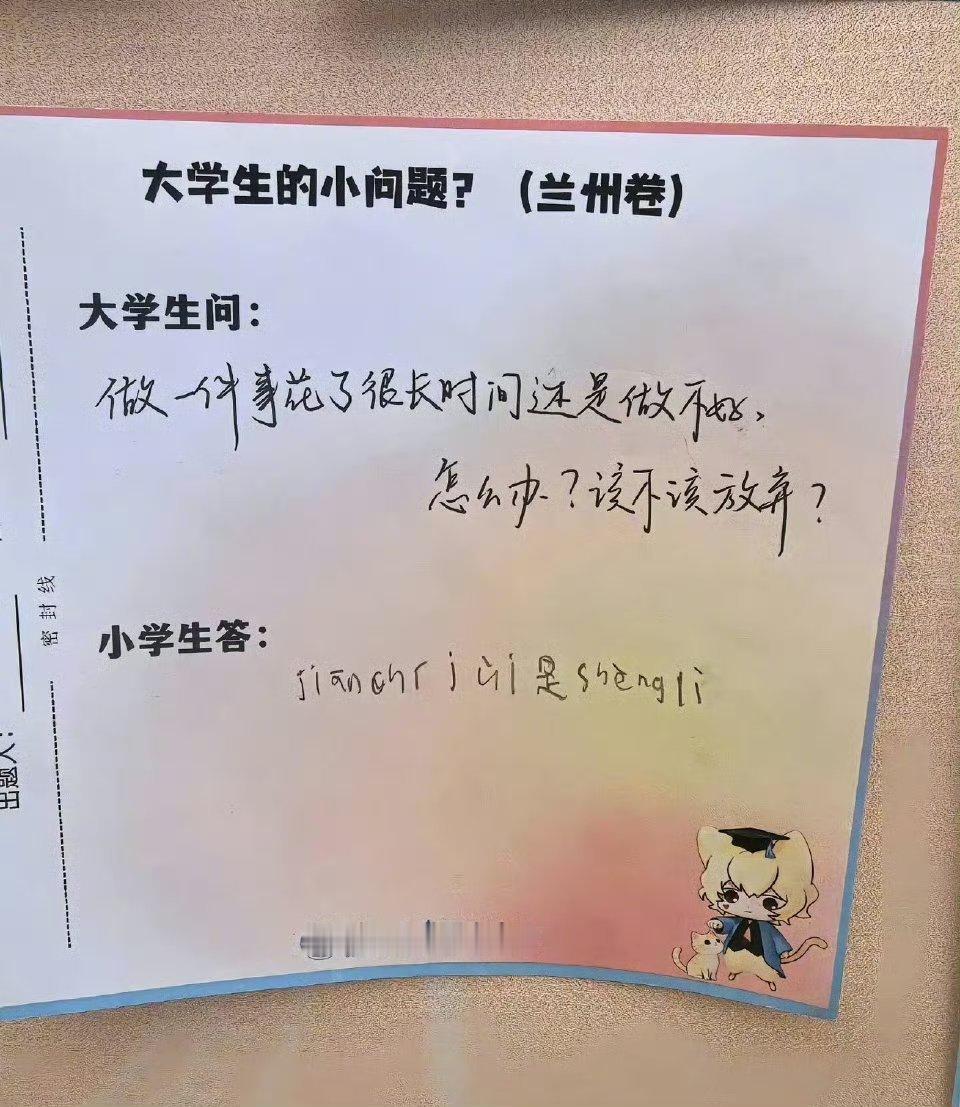 大学生的小问题？（兰州卷）
大学生问：
做一件事花了很长时间还是做不好，
怎么办？该不该放弃？
小学生答：
jianchi jiui是shengli
密封线
出题人：